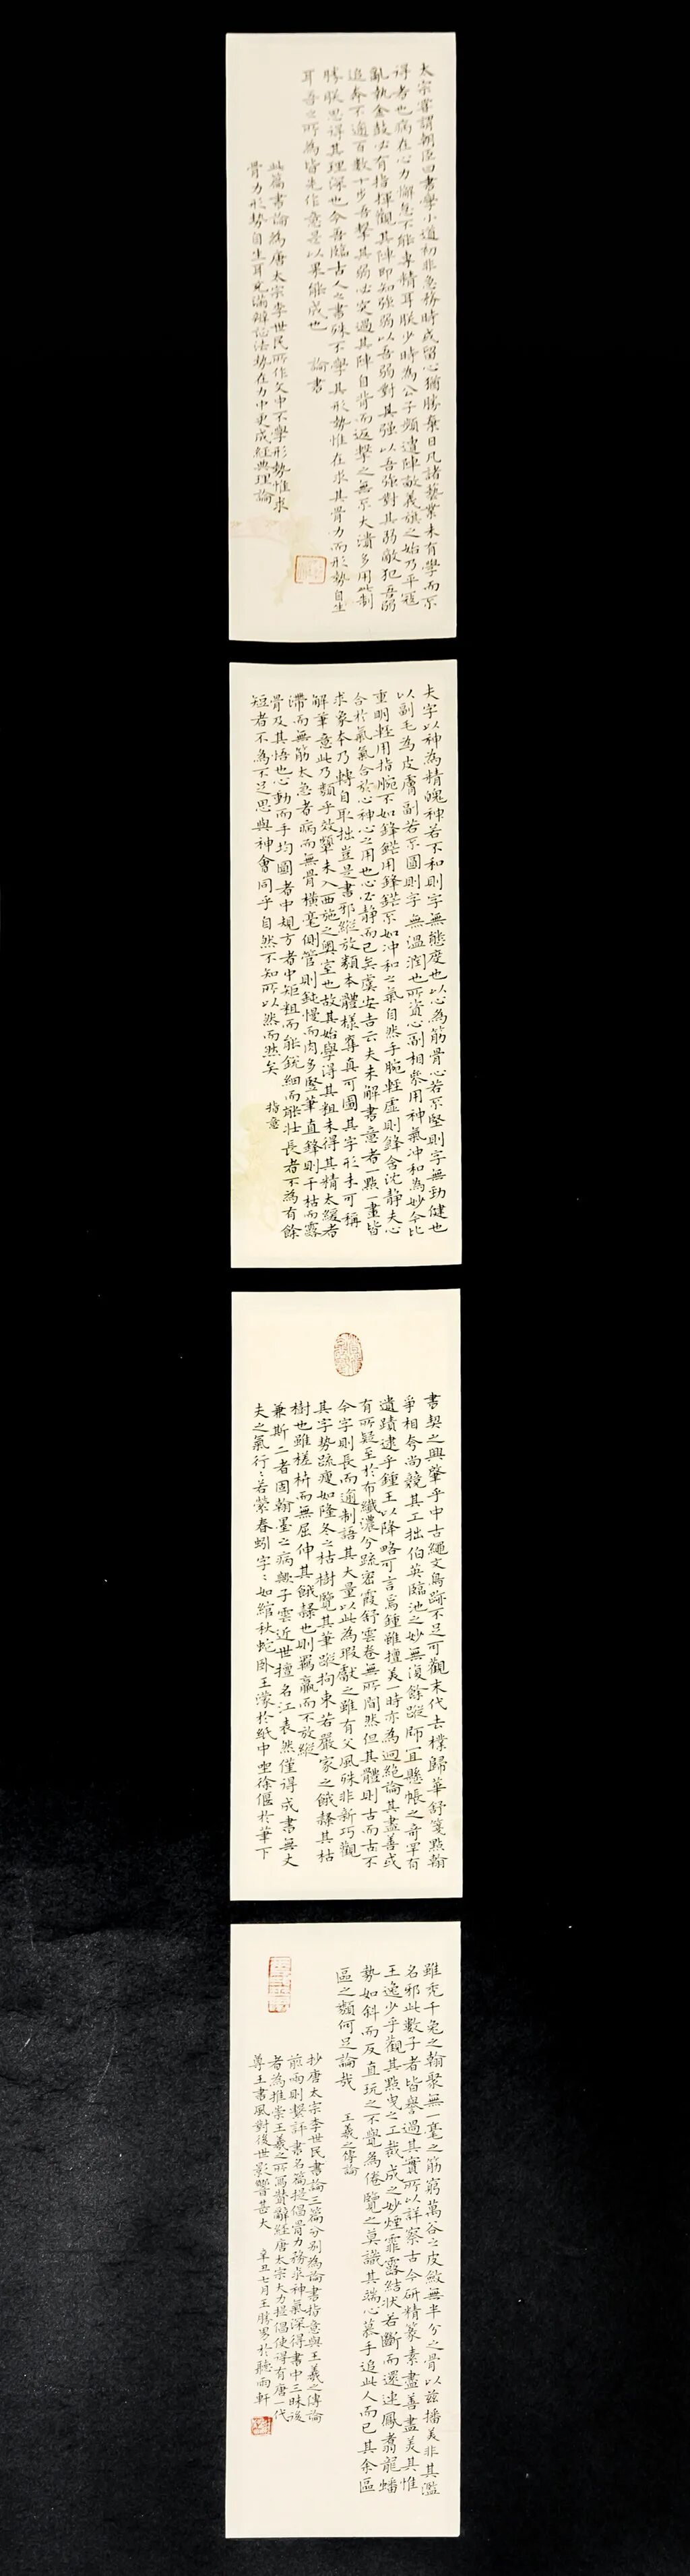 太宗嘗謂朝臣曰書學小道初非急務時或留心猶勝棄日凡諸藝業未有學而不
得者也病在心力懈怠不能專精耳朕少時為公子頻遭陣敵義旗之始乃平寇
亂執金鼓必有指揮觀其陣即知強弱以吾弱對其強以吾強對其弱敵犯吾弱
追奔不逾百數十步吾擊其弱必突過其陣自背而返擊之無不大潰多用此制
勝朕思得其理深也今吾臨古人之書殊不學其形勢惟在求其骨力而形勢自生
耳吾之所為皆先作意是以果能成也 論書
此篇書論為唐太宗李世民所作文中不學形勢惟求
骨力形勢自生耳充滿辯証法勢在力中更成經典理論
夫字以神為精魄神若不和則字無態度也以心為筋骨心若不堅則字無勁健也
以副毛為皮膚副若不圓則字無溫潤也所資心副相參用神氣沖和為妙今比
重明輕用指腕不如鋒鋩用鋒鋩不如沖和之氣自然手腕輕虛則鋒含沈靜夫心
合於氣氣合於心神心之用也心必靜而已矣虞安吉云夫未解書意者一點一畫皆
求象本乃轉自取拙豈是書邪縱放類本體樣奪真可圖其字形未可稱
解筆意此乃類乎效顰未入西施之奧室也故其始學得其粗未得其精太緩者
滯而無筋太急者病而無骨橫毫側管則鈍慢而肉多豎筆直鋒則干枯而露
骨及其悟也心動而手均圓者中規方者中矩粗而能銳細而能壯長者不為有餘
短者不為不足思與神會同乎自然不知所以然而然矣 指意
書契之興肇乎中古繩文鳥跡不足可觀末代去樸歸華舒箋點翰
爭相夸尚競其工拙伯英臨池之妙無復餘蹤師宜懸帳之奇罕有
遺蹟逮乎鍾王以降略可言焉鍾雖擅美一時亦為迥絕論其盡善或
有所疑至於布纖濃兮疏密霞舒雲卷無所間然但其體則古而古不
今字則長而逾制語其大量以此為瑕獻之雖有父風殊非新巧觀
其字勢疏瘦如隆冬之枯樹覽其筆蹤拘束若嚴家之餓隸其枯
樹也雖槎枿而無屈伸其餓隸也則羈羸而不放縱
兼斯二者固翰墨之病歟子雲近世擅名江表然僅得成書無丈
夫之氣行〻若縈春蚓字〻如綰秋蛇臥王濛於紙中坐徐偃於筆下
雖禿千兔之翰聚無一毫之筋窮萬谷之皮斂無半分之骨以茲播美非其濫
名邪此數子者皆譽過其實所以詳察古今研精篆素盡善盡美其惟
王逸少乎觀其點曳之工裁成之妙煙霏露結狀若斷而還連鳳翥龍蟠
勢如斜而反直玩之不覺為倦覽之莫識其端心慕手追此人而已其余區
區之類何足論哉 王羲之傳論
抄唐太宗李世民書論三篇分別為論書指意與王羲之傳論
前兩則擊評書名篇提倡骨力務求神氣深得書中三昧後
者為推崇王羲之所寫贊辭經唐太宗大力提倡使得有唐一代
尊王書風對後世影響甚大 辛丑七月王勝 於聽雨軒